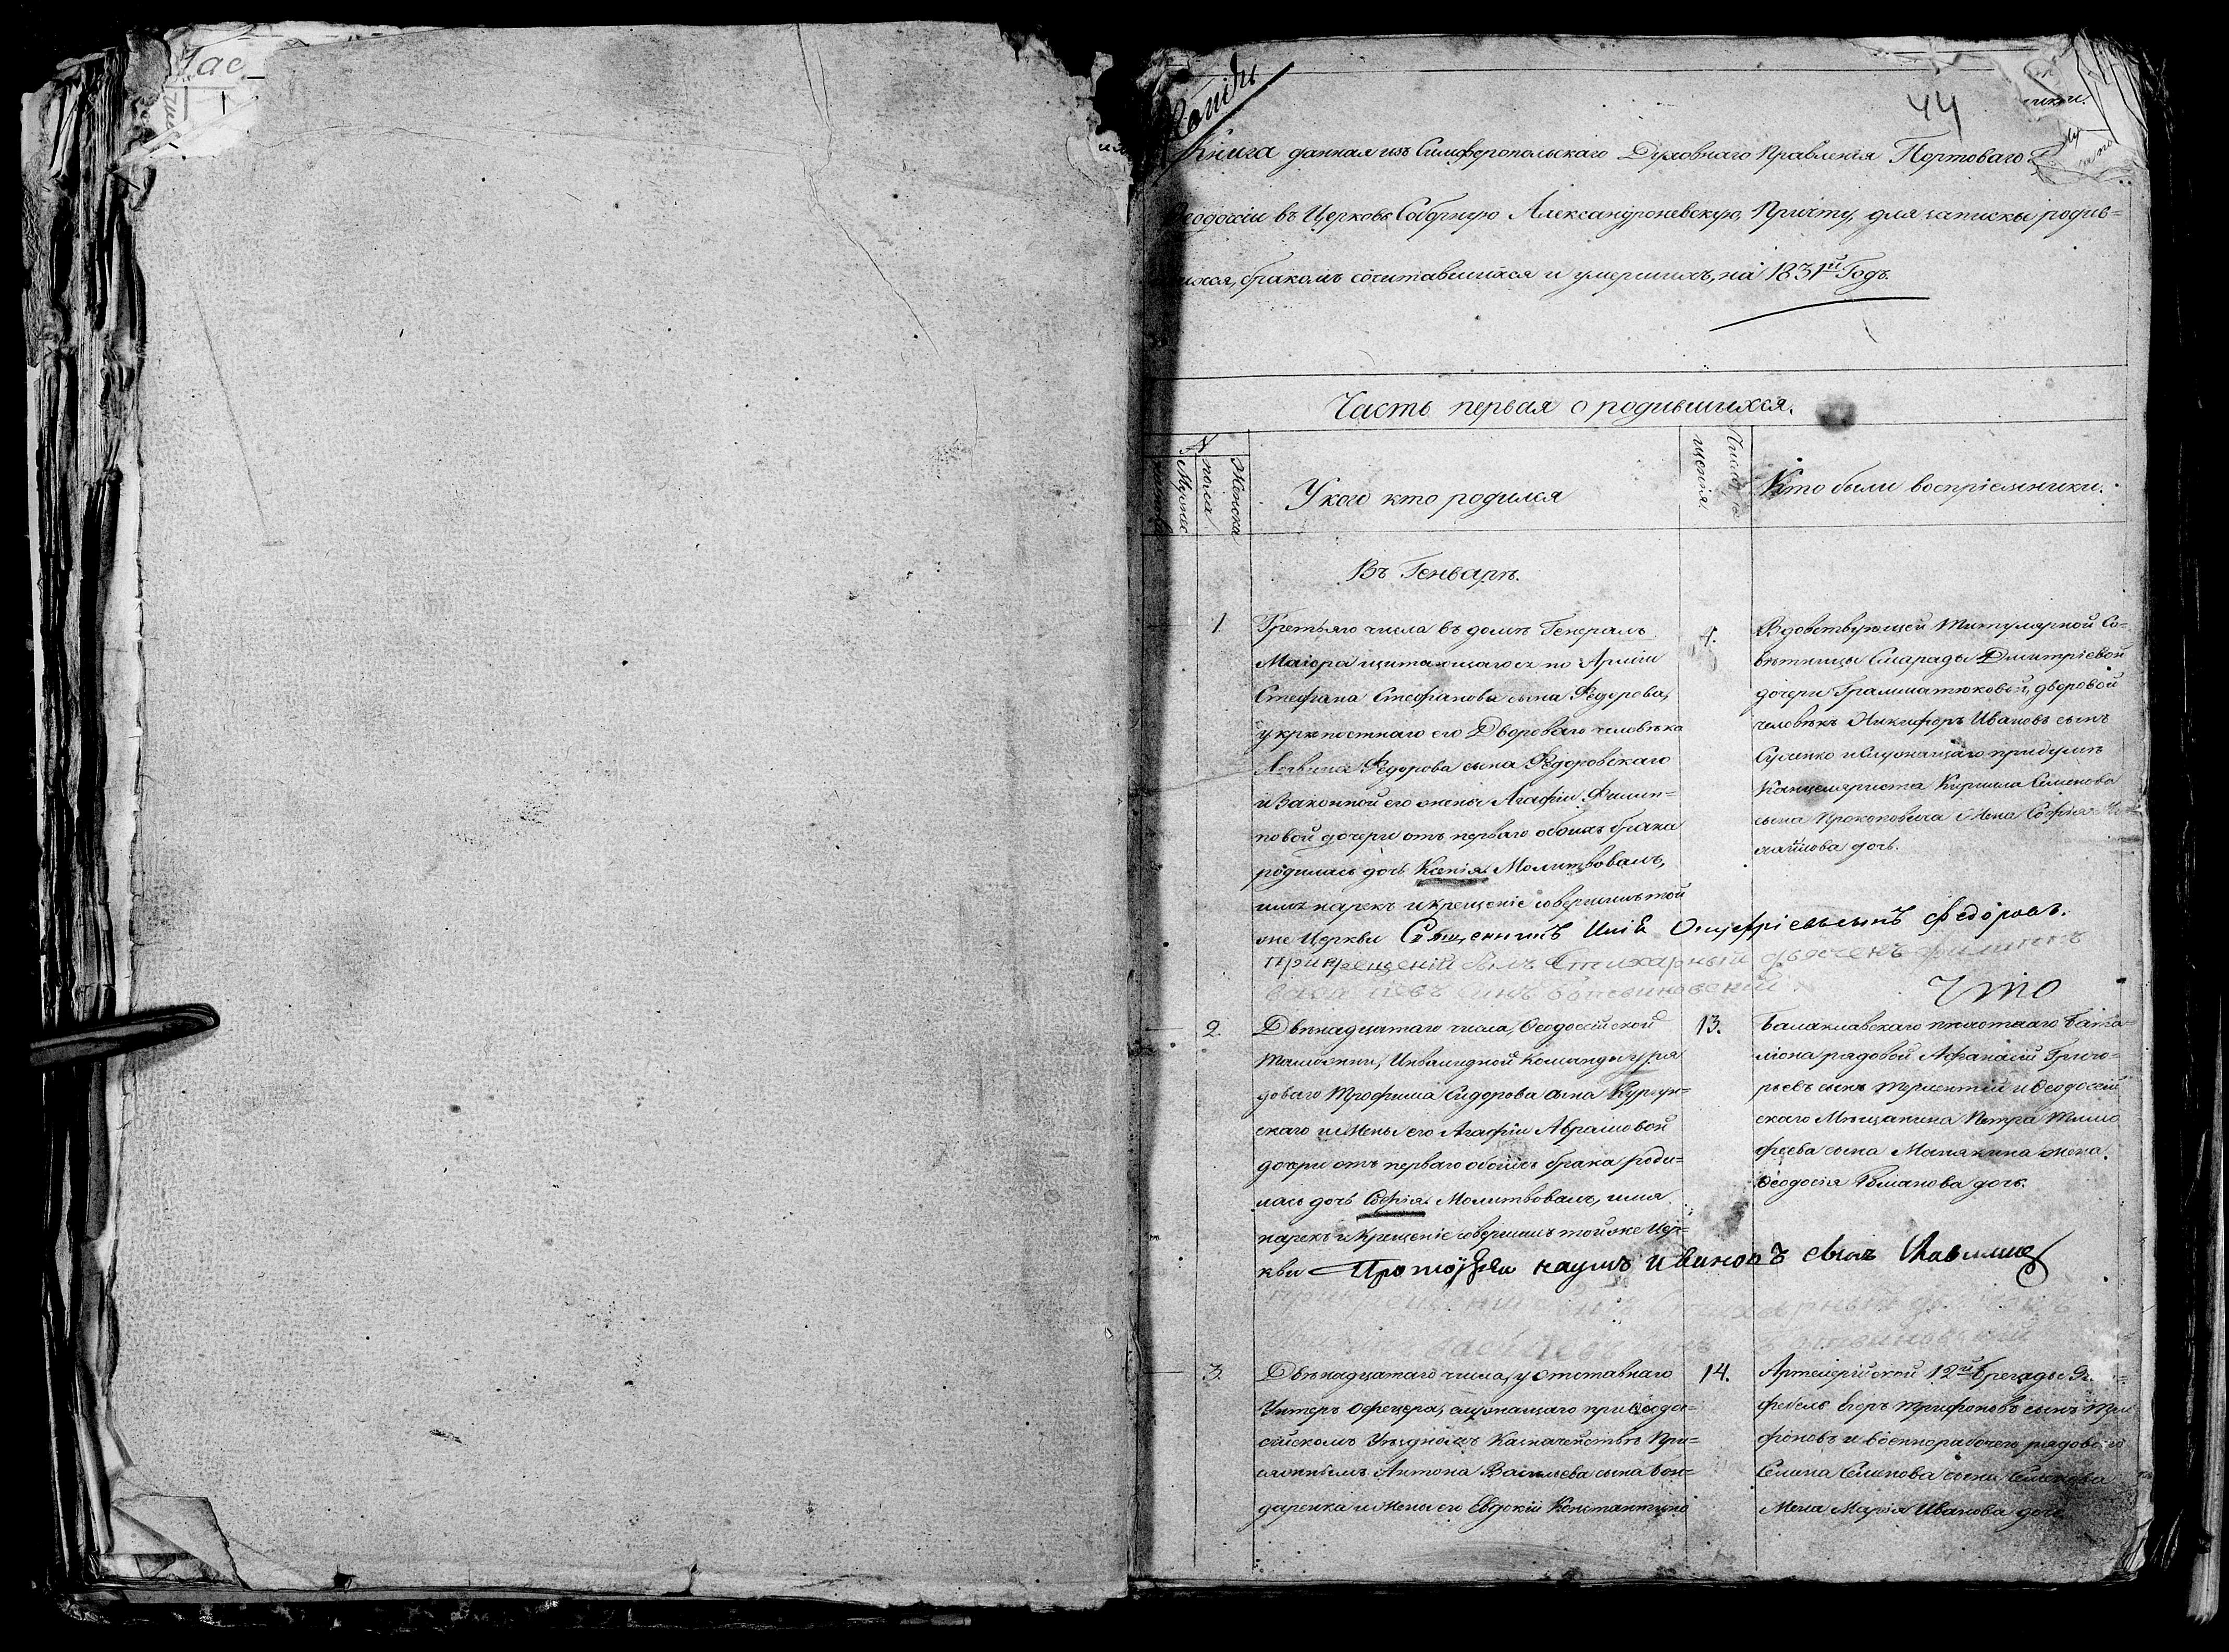 44
Книга данная изъ Симферопольскаго Духовнаго Правления Портоваго Г
Феодосіи въ Церковь Соборную Александроневскую, Причту, для записки родив=
шихся, бракомъ сочитавшихся и умершихъ, на 1831й Годъ.
Часть первая о родившихся.
№
Мужес
пола
Женска
У кого кто родился
Число
щенія.
Кто были воспріемники.
Въ Генварѣ.
1
Третьяго числа въ домѣ Генералъ
Маіора щитающагося по Арміи
Стефана Стефанова сына Федорова,
у крѣпостнаго его Двороваго человѣка
Федорова сына Федоровскаго
и Законной его жены Агафіи Филип=
повой дочери отъ перваго обоихъ брака
родилась дочь Ксенія. Молитвовалъ,
имя нарекъ и крещеніе совершилъ той
же Церкви Священникъ Илія Онуфріевъ сынъ Федоровъ.
При крещеніи былъ Стихарный дьячекъ Филиппъ
4.
Вдовствующей Титулярной Со=
вѣтницы Смарады Дмитріевой
дочери Грамматиковой, дворовой
человѣкъ Никифоръ Ивановъ сынъ
и Служащаго при думѣ
Канцеляриста Кирилла Семенова
сына Прокоповича Жена Софія
хайлова дочь.
Что
2.
Двѣнадцатаго числа, Феодосійской
Таможни, Инвалидной Команды у ря
доваго Трофима Сидорова сына
скаго и Жены его Агафіи Аврамовой
дочери отъ перваго обоихъ брака роди=
лась дочь Софія. Молитвовалъ, имя
нарекъ и Крещеніе совершилъ той же Цер=
кви Протоіерей Наумъ Ивановъ сынъ
13.
Балаклавскаго пѣхотнаго Бата=
ліона рядовой Афанасій Григо=
рьевъ сынъ Терлентій и Феодосій
скаго Мѣщанина Петра Тимо
феева сына Манякина жена.
Феодосія Романова дочь.
3.
Двѣнадцатаго числа, у отставнаго
Унтеръ Офецера, служащаго при Феодо=
сійскомъ Уѣздномъ Казначействѣ При=
сяжнымъ Антона Васильева сына Бон=
даренка и Жены его Евдокіи Константино
14.
Артелерійской 12й бригады Фе
фебель Егоръ Трифоновъ сынъ Три
фоновъ и военнорабочего рядоваго
Семена Семенова сына Семенова
Жена Марія Иванова дочь